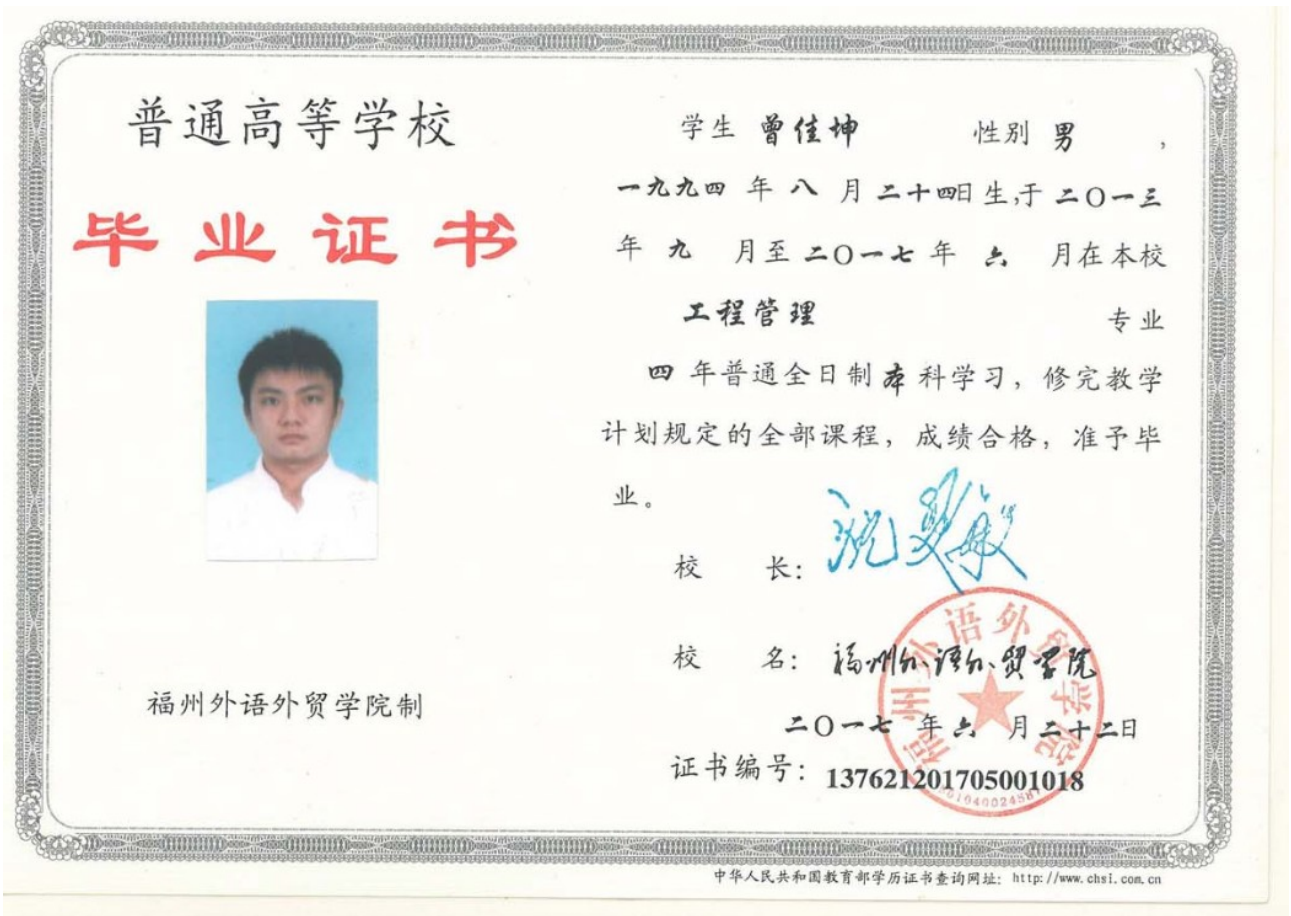 普通高等学校
毕业证书
福州外语外贸学院制
学生 曾佳坤 性别 男 ,
一九九四 年 八 月 二十四日生,于 二〇一三
年 九 月至 二〇一七 年 六 月在本校
工程管理 专业
四 年普通全日制 本 科学习，修完教学
计划规定的全部课程，成绩合格，准予毕
业。
校 长:
校 名: 福州外语外贸学院
福州外语外贸学院
二〇一七 年 六 月 二十二日
证书编号: 137621201705001018
中华人民共和国教育部学历证书查询网址: http://www.chsi.com.cn